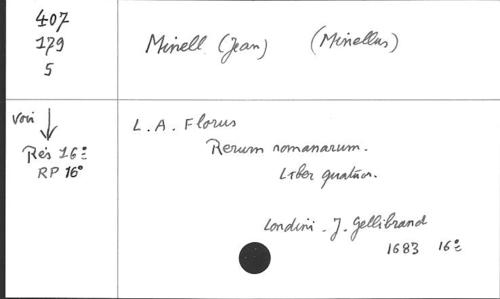 407
179
5
Minell (Jean) (Minellus)
voir
Rés 16º
RP 16º
L. A. Florus
Rerum romanarum.
Liber quatuor.
Londini. J. Gellibrand
1683 16º